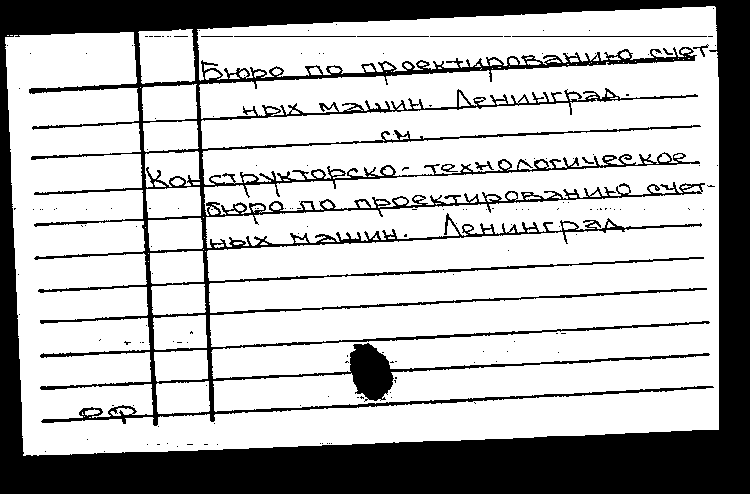 Бюро по проектированию счет-
ных машин. Ленинград.
см.
Конструкторско-технологическое
бюро по проектированию счет-
ных машин. Ленинград
ОФ